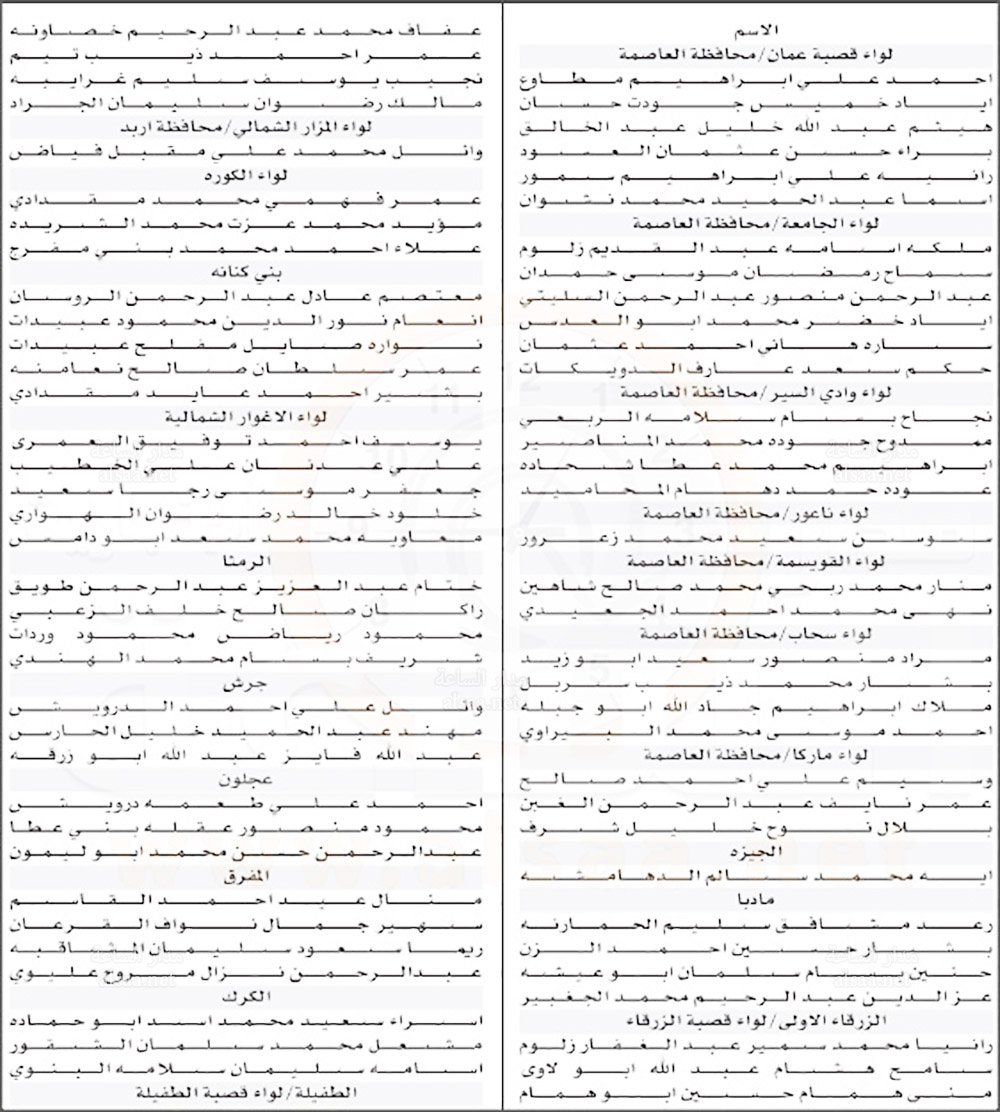 الاسم
لواء قصبة عمان/محافظة العاصمة
احمد علي ابراهيم مطاوع
اياد خميس جودت حسان
هيثم عبد الله خليل عبد الخالق
براء حسن عثمان العسود
رانيه علي ابراهيم سمور
اسما عبد الحميد محمد نشوان
لواء الجامعة/محافظة العاصمة
ملكه اسامه عبد القديم زلوم
سماح رمضان موسى حمدان
عبد الرحمن منصور عبد الرحمن السليتي
اياد خضر محمد ابو العدس
ساره هاني احمد عثمان
حكم سعد عارف الدويكات
لواء وادي السير/محافظة العاصمة
نجاح بسام سلامه الربعي
ممدوح جوده محمد المناصير
ابراهيم محمد عطا شحاده
عوده حمد دهام المحاميد
لواء ناعور/محافظة العاصمة
سوسن سعيد محمد زعرور
لواء القويسمة/محافظة العاصمة
منار محمد ربحي محمد صالح شاهين
نهى محمد احمد الجعيدي
لواء سحاب/محافظة العاصمة
مراد منصور سعيد ابو زيد
بشار محمد ذيب سربل
ملاك ابراهيم جاد الله ابو جبله
احمد موسى محمد البيراوي
لواء ماركا/محافظة العاصمة
وسيم علي احمد صالح
عمر نايف عبد الرحمن الغبن
بلال نوح خليل شرف
الجيزه
ايه محمد سالم الدهامشه
مادبا
رعد مشافق سليم الحمارنه
بشار حسين احمد الزن
حنين بسام سلمان ابو عيشه
عز الدين عبد الرحيم محمد الجغبير
الزرقاء الاولى/لواء قصبة الزرقاء
رانيا محمد سمير عبد الغفار زلوم
سامح هشام عبد الله ابو لاوى
منى همام حسين ابو همام
عفاف محمد عبد الرحيم خصاونه
عمر احمد ذيب تيم
نجيب يوسف سليم غرايبه
مالك رضوان سليمان الجراد
لواء المزار الشمالي/محافظة اربد
وائل محمد علي مقبل فياض
لواء الكوره
عمر فهمي محمد مقدادي
مؤيد محمد عزت محمد الشريده
علاء احمد محمد بني مفرج
بني كنانه
معتصم عادل عبد الرحمن الروسان
انعام نور الدين محمود عبيدات
نواره صايل مفلح عبيدات
عمر سلطان صالح نعامنه
بشير احمد عايد مقدادي
لواء الاغوار الشمالية
يوسف احمد توفيق العمرى
علي عدنان علي الخطيب
جعفر موسى رجا سعيد
خلود خالد رضوان الهواري
معاويه محمد سعد ابو دامس
الرمثا
ختام عبد العزيز عبد الرحمن طويق
راكان صالح خلف الزعبي
محمود رياض محمود وردات
شريف بسام محمد الهندي
جرش
وائل علي احمد الدرويش
مهند عبد الحميد خليل الحارس
عبد الله فايز عبد الله ابو زرقه
عجلون
احمد علي طعمه درويش
محمود منصور عقله بني عطا
عبدالرحمن حسن محمد ابو ليمون
المفرق
منال عيد احمد القاسم
سهير جمال نواف القرعان
ريما سعود سليمان المشاقبه
عبدالرحمن نزال مروح عليوي
الكرك
اسراء سعيد محمد اسد ابو حماده
مشعل محمد سلمان الشقور
اسامه سليمان سلامه البنوي
الطفيلة/لواء قصبة الطفيلة
مدار الساعة
alsaa.net